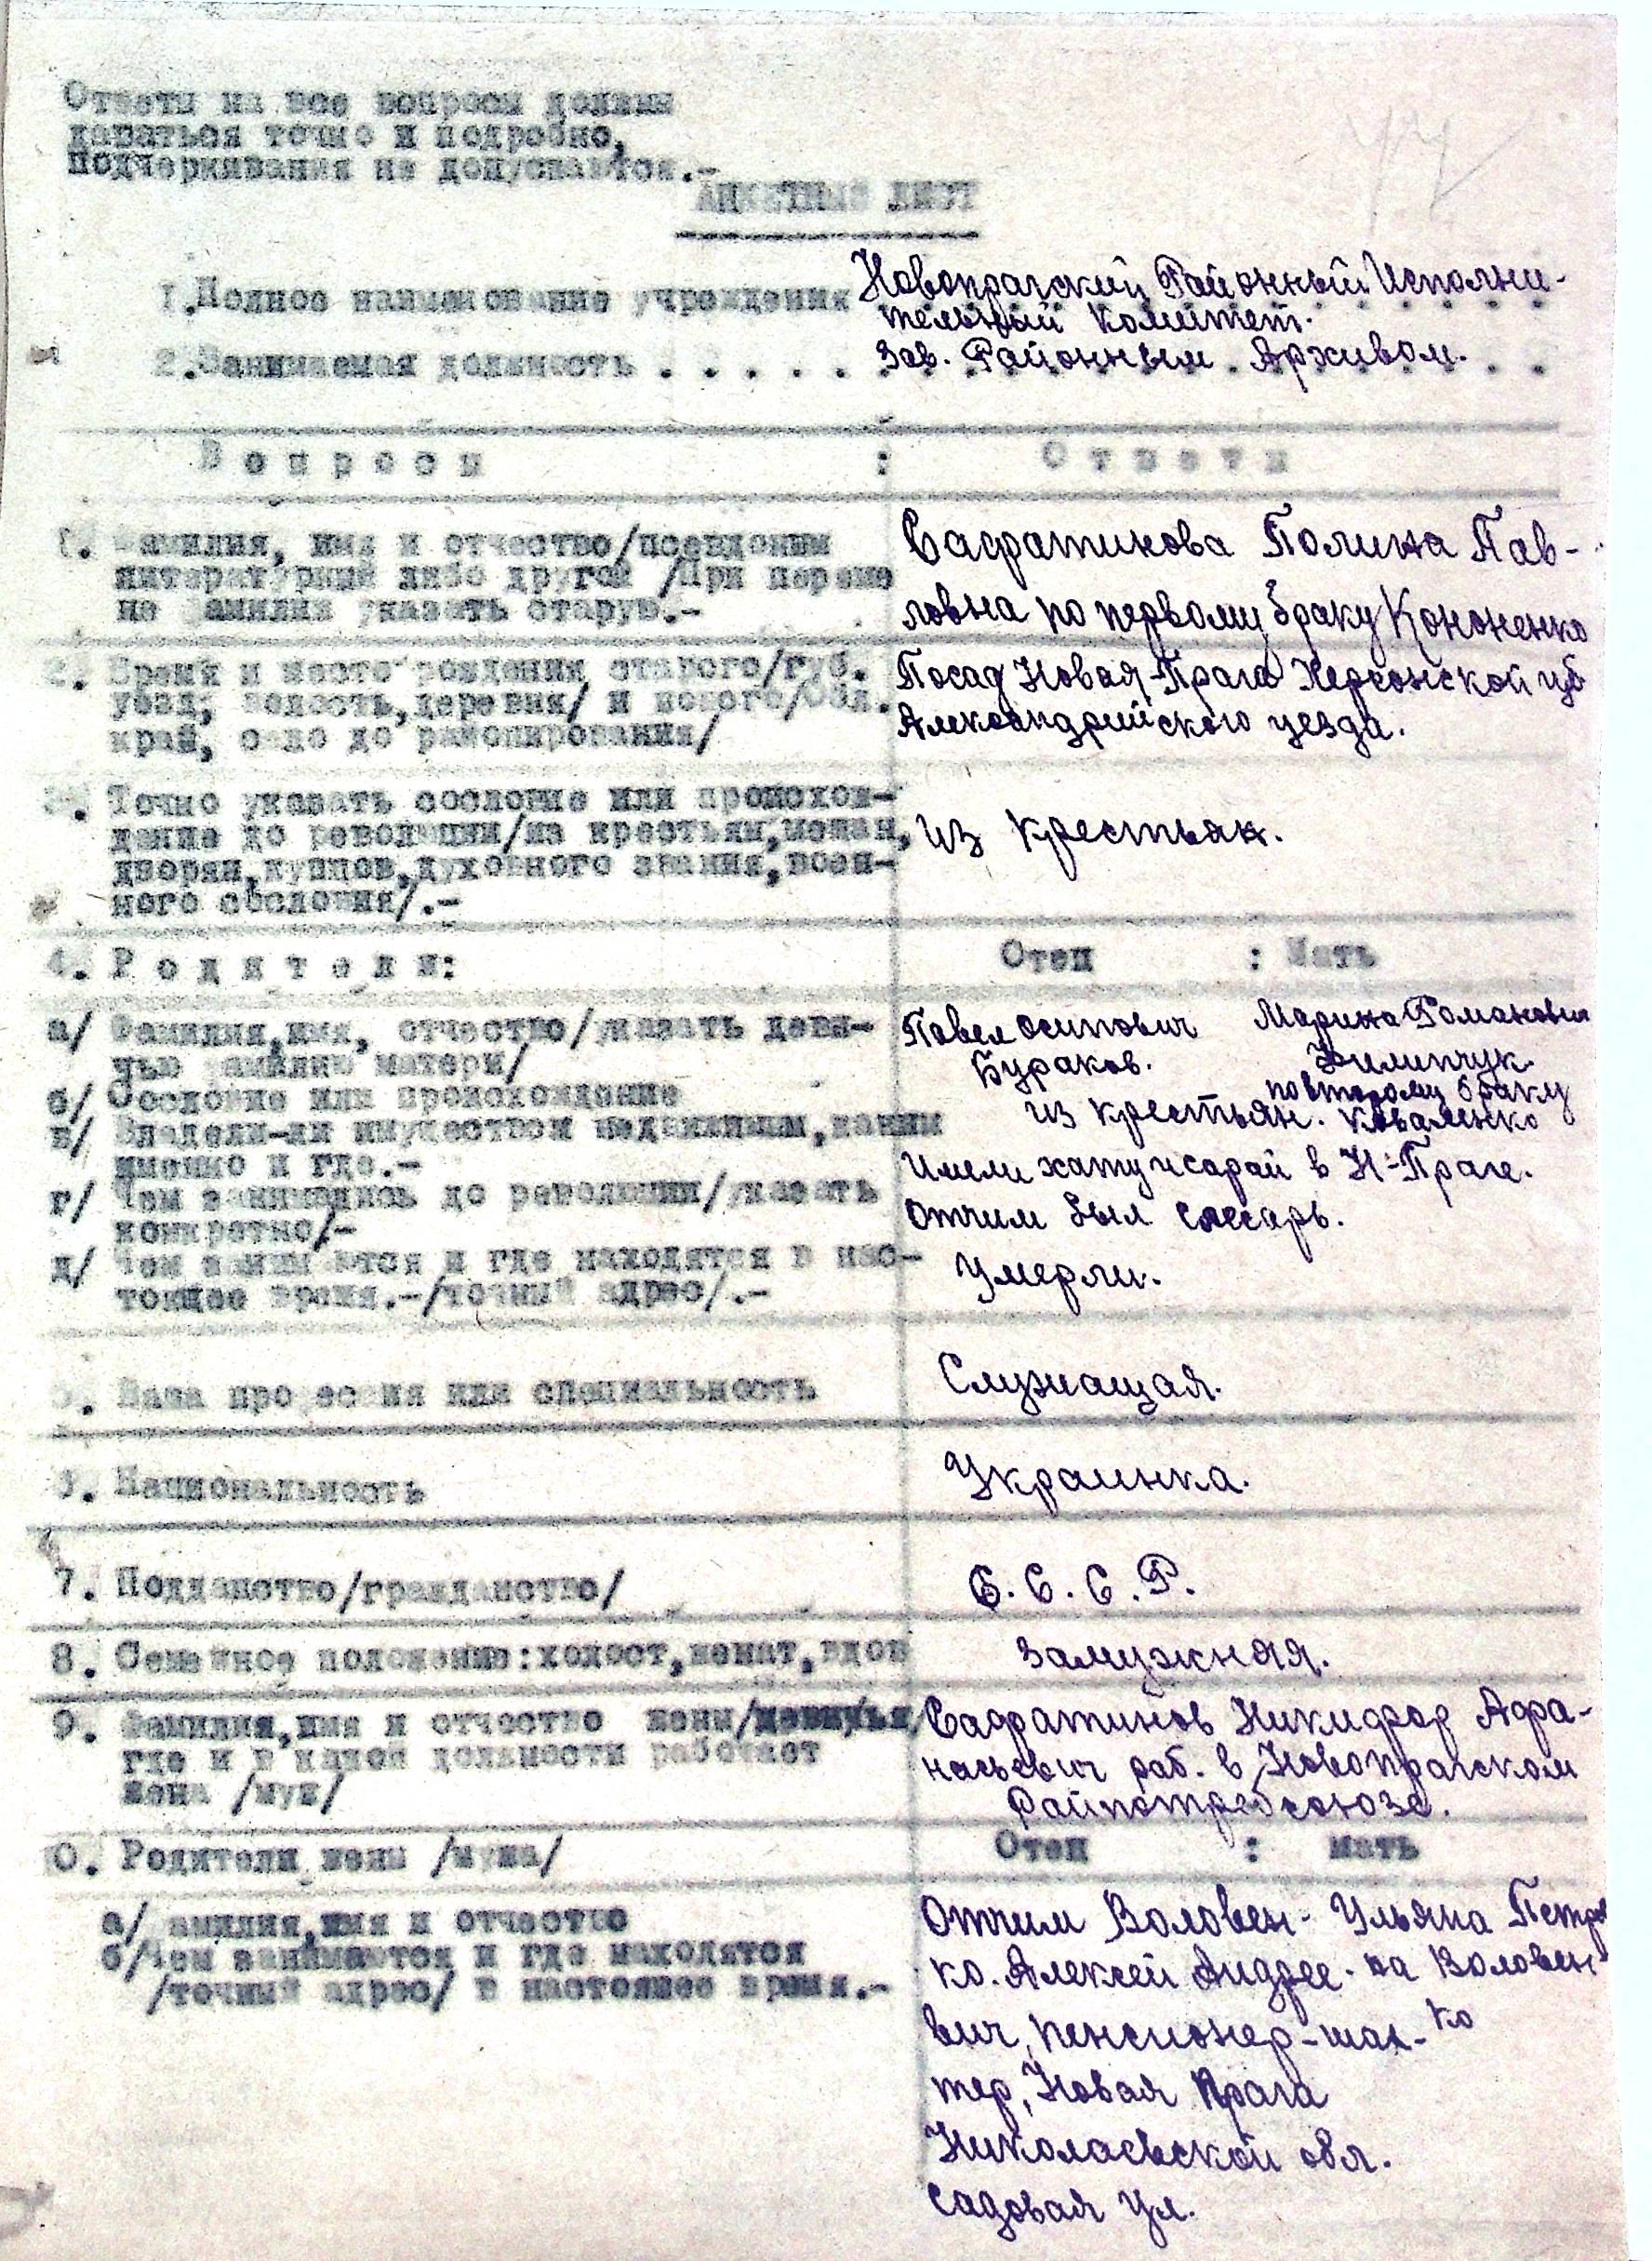 Ответы на все вопросы должны
даваться точно и подробно,
подчеркивания не допускаются.-
АНКЕТНЫЙ ЛИСТ
1. Полное наименование учреждения Новопрагский Районный Исполни-
тельный Комитет.
2. Занимаемая должность . . . . . Зав. Районным Архивом.
Вопросы : Ответы
1. Фамилия, имя и отчество/псевдоним
литературный либо другой /При переме
не фамилии указать старую.-
Сафатинова Полина Пав-
ловна по первому браку Кононенко
2. Время и место рождения старого/губ.
уезд, волость, деревня/ и нового/обл.
край, село до районирования/
Посад Новая-Прага Херсонской губ
Александрийского уезда.
3. Точно указать сословие или происхож-
дение до революции/из крестьян, мещан,
дворян, купцов, духовного звания, воен-
ного сословия/.-
из крестьян.
4. Родители: Отец : Мать
а/ Фамилия, имя, отчество/указать деви-
чью фамилию матери/
Павел Осипович
Бураков.
Марина Романовна
Филипчук.
по второму браку
Коваленко
б/ Сословие или происхождение
из крестьян.
в/ Владели-ли имуществом недвижимым, каким
именно и где.-
Имели хату и сарай в Н-Праге.
г/ Чем занимались до революции/указать
конкретно/-
Отчим был слесарь.
д/ Чем занимаются и где находятся в нас-
тоящее время.-/точный адрес/.-
Умерли.
5. Ваша профессия или специальность Служащая.
6. Национальность Украинка.
7. Подданство/гражданство/ С.С.С.Р.
8. Семейное положение: холост, женат, вдов Замужняя.
9. Фамилия, имя и отчество жены/девичья/
где и в какой должности работает
жена /муж/
Сафатинов Никифор Афа-
насьевич раб. в Новопрагском
Райпотребсоюзе.
10. Родители жены /мужа/ Отец : мать
а/ фамилия, имя и отчество
б/Чем занимаются и где находятся
/точный адрес/ в настоящее время.-
Отчим Воловен-
ко. Алексей Андрее-
вич, пенсионер-шах-
тер, Новая Прага
Николаевской обл.
Садовая ул.
Ульяна Петров
на Воловен
ко